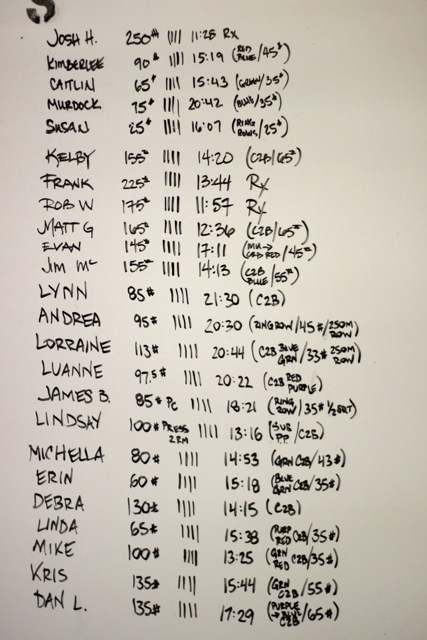 S
JOSH H. 250# |||| 11:28 Rx
KIMBERLEE 90# |||| 15:19 (RED BLUE/45#)
CAITLIN 65# |||| 15:43 (GRN/35#)
MURDOCK 75# |||| 20:42 (BLUE/35#)
SUSAN 25# |||| 16:07 (RING ROWS/25#)
KELBY 155# |||| 14:20 (C2B/65#)
FRANK 225# |||| 13:44 Rx
ROB W 175# |||| 11:57 Rx
MATT G 165# |||| 12:36 (C2B/65#)
EVAN 145# |||| 17:11 (RED/45#)
JIM Mc 155# |||| 14:13 (C2B BLUE/55#)
LYNN 85# |||| 21:30 (C2B)
ANDREA 95# |||| 20:30 (RING ROW/45#/250M ROW)
LORRAINE 113# |||| 20:44 (C2B BLUE GRN/33# 250M ROW)
LUANNE 97.5# |||| 20:22 (C2B RED PURPLE)
JAMES B. 85# PC |||| 18:21 (RING ROW/35#)
LINDSAY 100# PRESS 2RM |||| 13:16 (SUB PP/C2B)
MICHELLA 80# |||| 14:53 (GRN C2B/43#)
ERIN 60# |||| 15:18 (BLUE GRN C2B/35#)
DEBRA 130# |||| 14:15 (C2B)
LINDA 65# |||| 15:38 (PURP RED C2B/35#)
MIKE 100# |||| 13:25 (GRN RED C2B/35#)
KRIS 135# |||| 15:44 (GRN C2B/55#)
DAN L. 135# |||| 17:29 (PURPLE → BLUE C2B/65#)